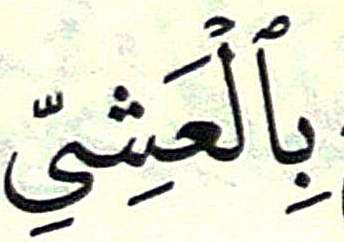 بِٱلْعَشِىِّ